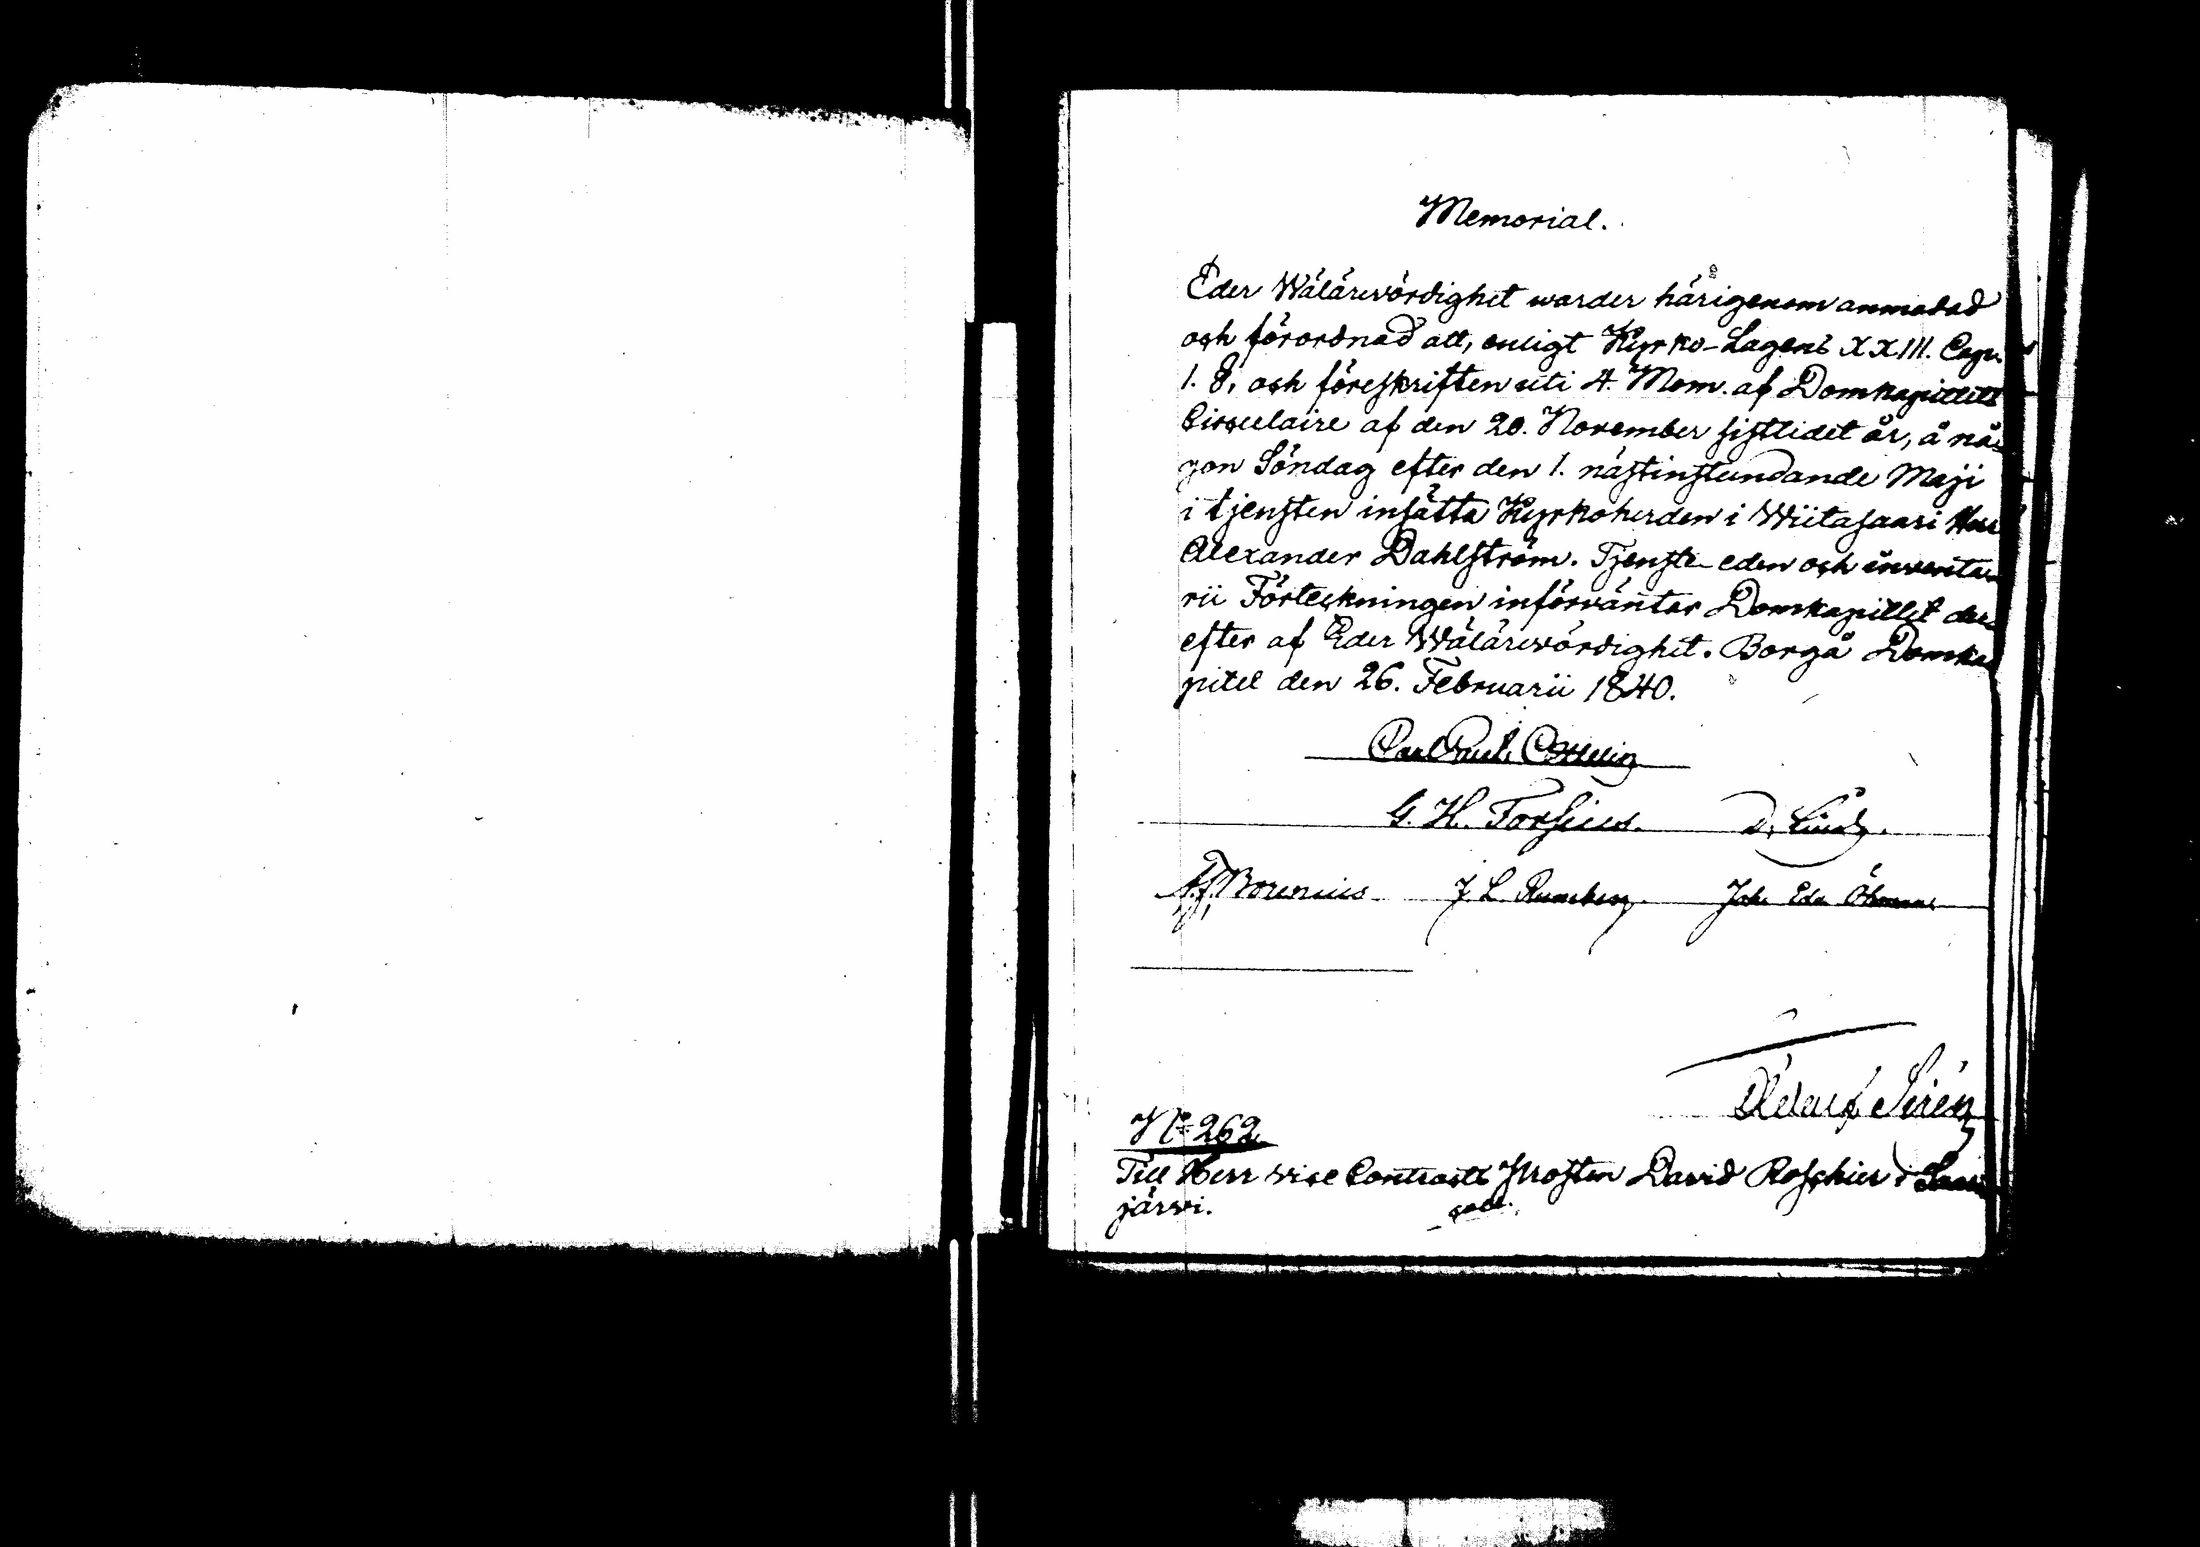 Memorial.
Eder Wälärevördighet warder härigenom anmodad
och förordnad att, enligt Kyrko-Lagens XXIII. Cap.
1. §, och föreskriften uti 4. Mom. af Domkapitlets
Circulaire af den 20. November sistlidet år, å nå-
gon Söndag efter den 1. nästinstundande Maji
i tjensten insätta Kyrkoherden i Wiitasaari Herr
Alexander Dahlström. Tjenste-eden och inventa-
rii Förteckningen införväntar Domkapitlet der-
efter af Eder Wälärevördighet. Borgå Domka-
pitel den 26. Februarii 1840.
Carl Ottelin
G. H. Forsius. D. Lund.
Borenius J. L. Runeberg. Joh. Edv. Öhman
Sirén
No 262.
Till Herr vice Contracts Prosten David Roschier i Saari
järvi.